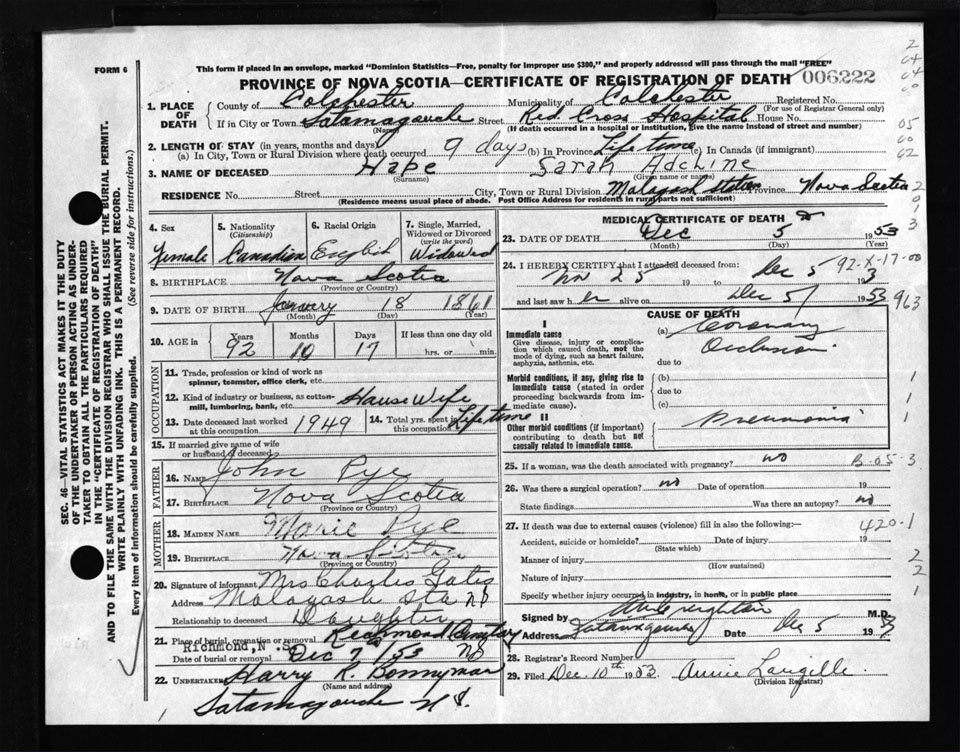 FORM 6
This form if placed in an envelope, marked "Dominion Statistics—Free, penalty for improper use $300," and properly addressed will pass through the mail "FREE"
PROVINCE OF NOVA SCOTIA—CERTIFICATE OF REGISTRATION OF DEATH 006222
1. PLACE OF DEATH
County of Colchester Municipality of Colchester Registered No.
(For use of Registrar General only)
If in City or Town Tatamagouche Street Red Cross Hospital House No.
(Name) (If death occurred in a hospital or institution, give the name instead of street and number)
2. LENGTH OF STAY (in years, months and days)
(a) In City, Town or Rural Division where death occurred 9 days (b) In Province Life time (c) In Canada (if immigrant)
3. NAME OF DECEASED Hape Sarah Adeline
(Surname) (Given name or names)
RESIDENCE No. Street City, Town or Rural Division Malagash Station Province Nova Scotia
(Residence means usual place of abode. Post Office Address for residents in rural parts not sufficient)
4. Sex 5. Nationality 6. Racial Origin 7. Single, Married, Widowed or Divorced
(Citizenship) (write the word)
Female Canadian English Widowed
8. BIRTHPLACE Nova Scotia
(Province or Country)
9. DATE OF BIRTH January 18 1861
(Month) (Day) (Year)
10. AGE in Years Months Days If less than one day old
92 10 17 hrs. or min.
OCCUPATION
11. Trade, profession or kind of work as spinner, teamster, office clerk, etc.
12. Kind of industry or business, as cotton-mill, lumbering, bank, etc. House Wife
13. Date deceased last worked at this occupation 1949 14. Total yrs. spent in this occupation Life time
15. If married give name of wife or husband of deceased
FATHER
16. NAME John Pye
17. BIRTHPLACE Nova Scotia
(Province or Country)
MOTHER
18. MAIDEN NAME Marie Pye
19. BIRTHPLACE Nova Scotia
(Province or Country)
20. Signature of informant Mrs Charles Gates
Address Malagash Sta NS
Relationship to deceased Daughter
21. Place of burial, cremation or removal Redmond Cemetary
Richmond, N.S.
Date of burial or removal Dec 7/53 NS
22. UNDERTAKER Harry R. Bonnyman
(Name and address)
Tatamagouche N S.
MEDICAL CERTIFICATE OF DEATH
23. DATE OF DEATH Dec 5 1953
(Month) (Day) (Year)
24. I HEREBY CERTIFY that I attended deceased from: 92-X-17-00
Nov 25 19 to Dec 5 1953
and last saw her alive on Dec 5/ 1953 963
CAUSE OF DEATH
I
Immediate cause
Give disease, injury or complication which caused death, not the mode of dying, such as heart failure, asphyxia, asthenia, etc.
(a) Coronary Occlusion
due to
Morbid conditions, if any, giving rise to immediate cause (stated in order proceeding backwards from immediate cause).
(b)
due to
(c)
II
Other morbid conditions (if important) contributing to death but not causally related to immediate cause.
Pneumonia
25. If a woman, was the death associated with pregnancy? no B-05-3
26. Was there a surgical operation? no Date of operation 19
State findings Was there an autopsy? no
27. If death was due to external causes (violence) fill in also the following:— 420-1
Accident, suicide or homicide? Date of injury 19
(State which)
Manner of injury
(How sustained)
Nature of injury
Specify whether injury occurred in industry, in home, or in public place
Signed by M.D.
Address Tatamagouche Date Dec 5 19
28. Registrar's Record Number
29. Filed Dec. 10th 1953. Annie Langille
(Division Registrar)
SEC. 46—VITAL STATISTICS ACT MAKES IT THE DUTY OF THE UNDERTAKER OR PERSON ACTING AS UNDERTAKER TO OBTAIN ALL THE PARTICULARS REQUIRED IN THE "CERTIFICATE OF REGISTRATION OF DEATH" AND TO FILE THE SAME WITH THE DIVISION REGISTRAR WHO SHALL ISSUE THE BURIAL PERMIT.
WRITE PLAINLY WITH UNFADING INK. THIS IS A PERMANENT RECORD.
Every item of information should be carefully supplied. (See reverse side for instructions.)